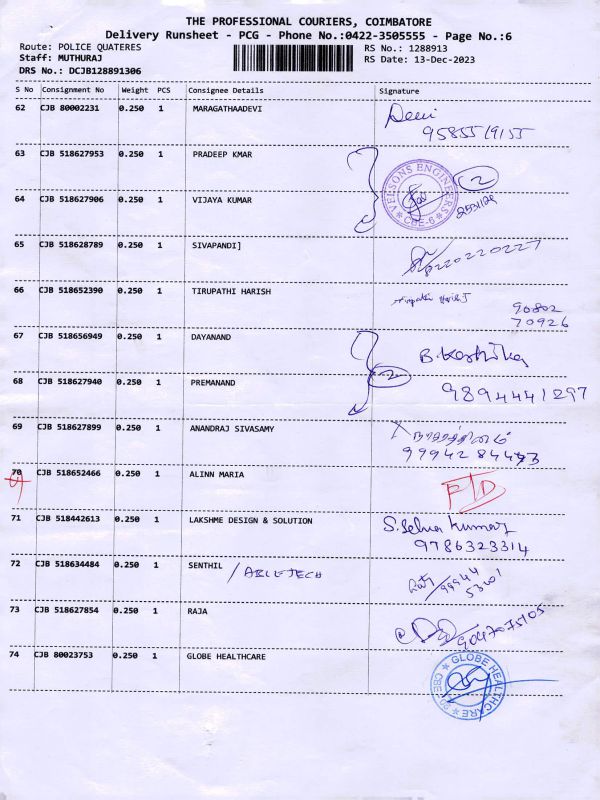 THE PROFESSIONAL COURIERS, COIMBATORE
Delivery Runsheet - PCG - Phone No.:0422-3505555 - Page No.:6
Route: POLICE QUATERES RS No.: 1288913
Staff: MUTHURAJ RS Date: 13-Dec-2023
DRS No.: DCJB128891306
S No Consignment No Weight PCS Consignee Details Signature
62 CJB 80002231 0.250 1 MARAGATHAADEVI Devi
9585519155
63 CJB 518627953 0.250 1 PRADEEP KMAR
VELSONS ENGINEERS
CBE-6
2
64 CJB 518627906 0.250 1 VIJAYA KUMAR
65 CJB 518628789 0.250 1 SIVAPANDI]
66 CJB 518652390 0.250 1 TIRUPATHI HARISH Tirupathi Harish T
90802
70926
67 CJB 518656949 0.250 1 DAYANAND
B. Karthika
2
68 CJB 518627940 0.250 1 PREMANAND 9894441297
69 CJB 518627899 0.250 1 ANANDRAJ SIVASAMY
9994284473
70 CJB 518652466 0.250 1 ALINN MARIA
71 CJB 518442613 0.250 1 LAKSHME DESIGN & SOLUTION S. Selva Kumar
9786323314
72 CJB 518634484 0.250 1 SENTHIL / ABLE-TECH
99944
53001
73 CJB 518627854 0.250 1 RAJA 9047075105
74 CJB 80023753 0.250 1 GLOBE HEALTHCARE
GLOBE HEALTHCARE